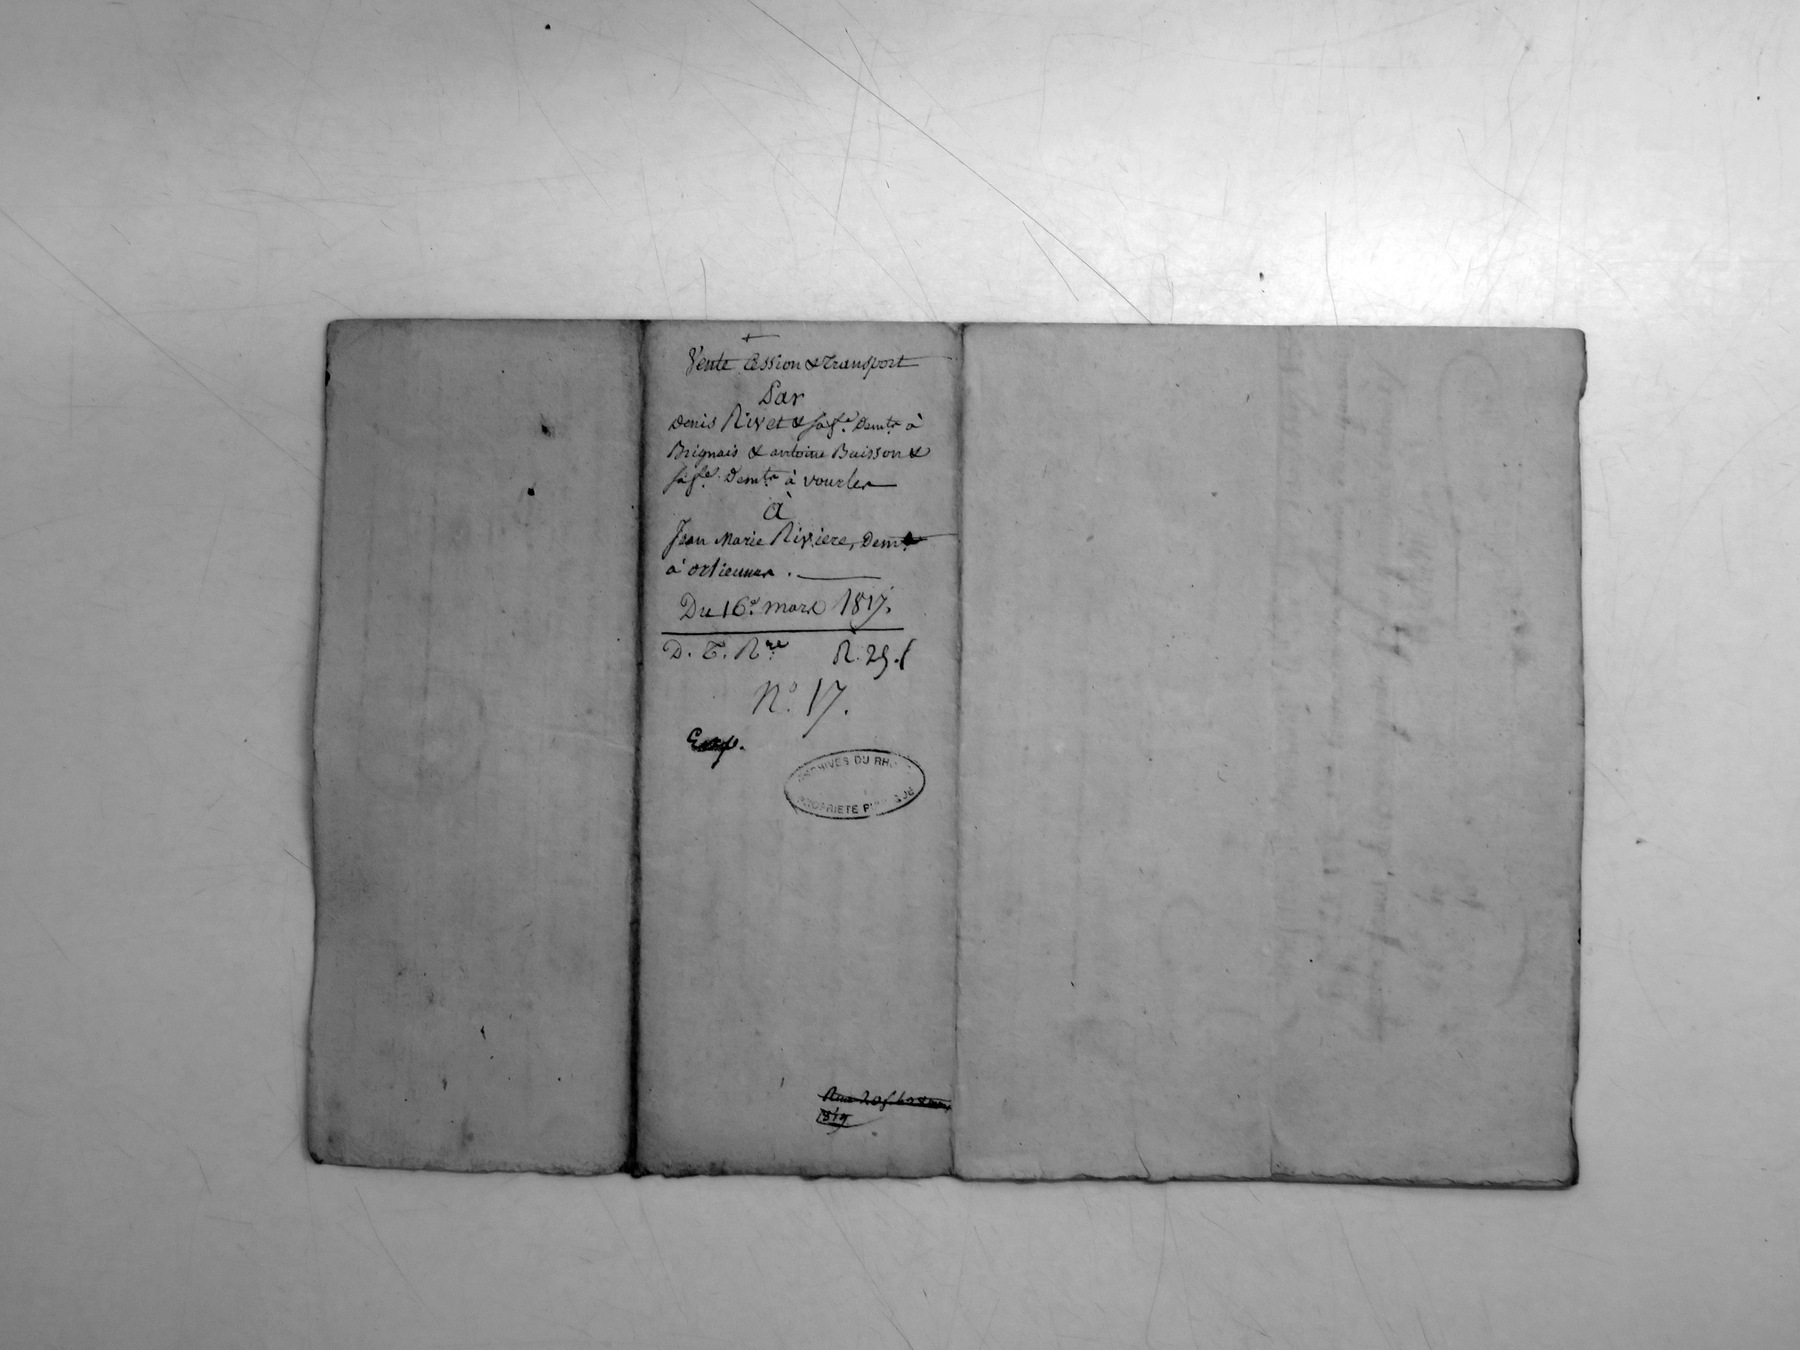 Vente Cession & Transport
Par
Denis Rivet & sa fe. Demtr à
Brignais & antoine Buisson &
sa fe. Demtr à vourles
à
Jean Marie Riviere, Demt
à orlienas.
Du 16e. mars 1817.
D. T. Nre R. 25. f
N.o 17.
Exp.
ARCHIVES DU RH
PROPRIETE PU
1819